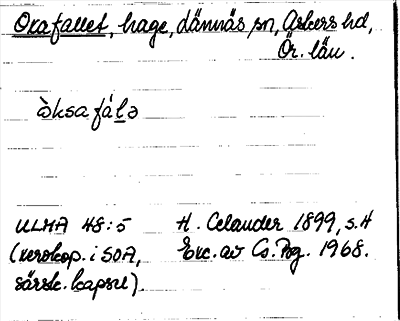 Oxafallet, hage, Lännäs sn, Askers hd,
Ör. län.
òksafálə
ULMA 48:5 H. Celander 1899, s. 4
(xerokop. i SOA, Exc. av Co. Bg. 1968.
särsk. kapsel).